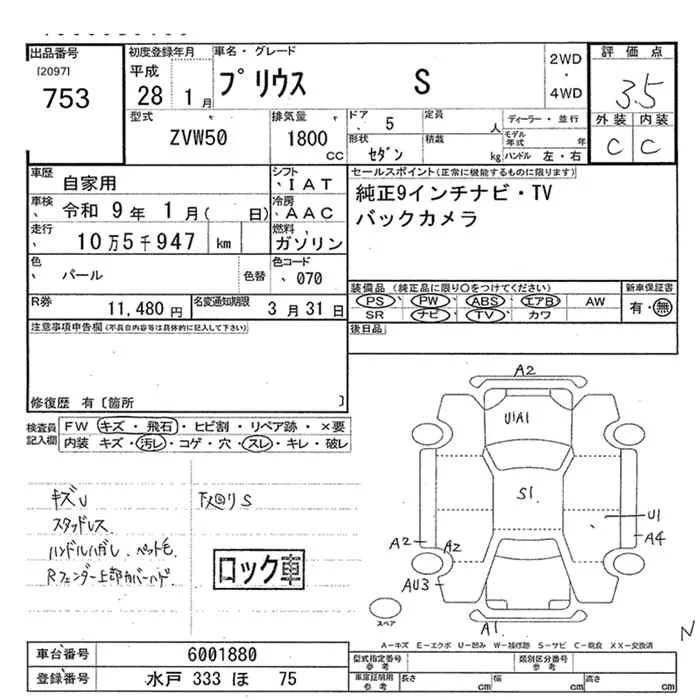 出品番号 初度登録年月 車名・グレード 評価点
[2097] 平成 プリウス S 2WD・4WD 3.5
753 28 1月 外装 内装
型式 排気量 ドア 5 定員 人 ディーラー・並行 C C
ZVW50 1800 CC 形状 セダン 積載 kg モデル年式 年 ハンドル 左・右
車歴 自家用 シフト IAT セールスポイント(正常に機能するものに限ります)
車検 令和 9年 1月( 日) 冷房 AAC 純正9インチナビ・TV
走行 10万5千947 km 燃料 ガソリン バックカメラ
色 パール 色替 色コード 070
装備品 (純正品に限り○をつけてください) 新車保証書
R券 11,480円 名変通知期限 3月31日 PS PW ABS エアB AW 有・無
SR ナビ TV カワ
注意事項申告欄(不具合内容等は具体的に記入して下さい) 後日品
修復歴 有〔箇所 〕
検査員記入欄 FW キズ・飛石・ヒビ割・リペア跡・×要
内装 キズ・汚レ・コゲ・穴・スレ・キレ・破レ
A2
U1A1
S1
U1
A2 A2 A4
AU3
A1
スペア
キズU 下回りS
スタッドレス
ハンドルハガレ ペット毛
Rフェンダー上部カバーハガレ
ロック車
N
A−キズ E−エクボ U−凹み W−補修跡 S−サビ C−腐食 XX−交換済
車台番号 6001880 型式指定番号 参考 類別区分番号 参考
登録番号 水戸 333 ほ 75 車庫証明用 参考 長さ cm 幅 cm 高さ cm